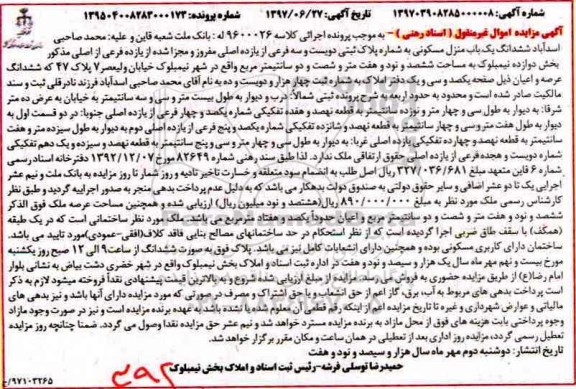 شماره آگهی: ۱۳۹۷۰۳۹۰۸۲۸۵۰۰۰۰۰۸ تاریخ آگهی: ۱۳۹۷/۰۶/۲۷ شماره پرونده: ۱۳۹۵۰۴۰۰۸۲۸۳۰۰۰۱۷۳
آگهی مزایده اموال غیرمنقول (اسناد رهنی) - به موجب پرونده اجرائی کلاسه ۹۶۰۰۰۲۶ له: بانک ملت شعبه قاین و علیه: محمد صاحبی
اسدآباد ششدانگ یک باب منزل مسکونی به شماره پلاک ثبتی دویست و سه فرعی از یازده اصلی مفروز و مجزا شده از یازده فرعی از اصلی مذکور
بخش دوازده نیمبلوک به مساحت ششصد و نود و هفت متر و شصت و دو سانتیمتر مربع واقع در شهر نیمبلوک خیابان ولیعصر ۷ پلاک ۴۷ که ششدانگ
عرصه و اعیان ذیل صفحه یکصد و سی و یک دفتر املاک به شماره ثبت چهار هزار و دویست و ده به نام آقای محمد صاحبی اسدآباد فرزند نادرقلی ثبت و سند
مالکیت صادر شده است و محدود به حدود اربعه به شرح پرونده ثبتی شمالا: درب و دیوار به طول بیست متر و سی و سه سانتیمتر به خیابان به عرض ده متر
شرقا: به دیوار به طول سی و چهار متر و نوزده سانتیمتر به قطعه نهصد و هفده تفکیکی شماره یکصد و چهار فرعی از یازده اصلی جنوبا: در دو قسمت اول به
دیوار به طول هفت متر و سی و چهار سانتیمتر به قطعه نهصد و شانزده تفکیکی شماره یکصد و پنج فرعی از یازده اصلی دوم به دیوار به طول سیزده متر و هفت
سانتیمتر به قطعه نهصد و چهارده تفکیکی یازده اصلی غربا: به دیوار به طول سی و چهار متر و سی و پنج سانتیمتر به قطعه نهصد و سیزده و یک دهم تفکیکی
شماره دویست و هجده فرعی از یازده اصلی حقوق ارتفاقی ملک ندارد. لذا طبق سند رهنی شماره ۸۲۶۴۹ مورخ ۱۳۹۲/۱۲/۰۷ دفترخانه اسناد رسمی
شماره ۶ قاین متعهد مبلغ ۳۲۷/۰۳۶/۶۸۱ ریال اصل طلب به انضمام سود متعلقه و خسارت تاخیر تادیه و روز شمار تا روز مزایده به بانک ملت و نیم عشر
اجرایی یک تا دو عشر اضافی و سایر حقوق دولتی به صندوق دولت بدهکار می باشد که به دلیل عدم پرداخت بدهی منجر به صدور اجراییه گردید و طبق نظر
کارشناس رسمی ملک مورد نظر به مبلغ ۸۹۰/۰۰۰/۰۰۰ ریال (هشتصد و نود میلیون ریال) ارزیابی شده و همچنین مساحت عرصه ملک فوق الذکر
ششصد و نود و هفت متر و شصت و دو سانتیمتر مربع و اعیان حدودا یکصد و هفتاد مترمربع می باشد. ملک مورد نظر ساختمانی است که در یک طبقه
(همکف) با سقف طاق ضربی اجرا گردیده است که از نظر استحکام در حد ساختمانهای مصالح بنایی فاقد کلاف (افقی-عمودی) مورد تایید می باشد.
ساختمان دارای کاربری مسکونی بوده و همچنین دارای انشعابات کامل نیز می باشد. پلاک فوق به صورت ششدانگ از ساعت ۹ الی ۱۲ صبح روز یکشنبه
مورخ بیست و نهم مهر ماه سال یک هزار و سیصد و نود و هفت در اداره ثبت اسناد و املاک بخش نیمبلوک واقع در شهر خضری دشت بیاض به نشانی بلوار
امام رضا(ع) از طریق مزایده حضوری به فروش می رسد. مزایده از مبلغ ارزیابی شده شروع و به بالاترین قیمت پیشنهادی نقدا فروخته میشود لازم به ذکر
است پرداخت بدهی های مربوط به آب، برق، گاز اعم از حق انشعاب و یا حق اشتراک و مصرف در صورتی که مورد مزایده دارای آنها باشد و نیز بدهی های
مالیاتی و عوارض شهرداری و غیره تا تاریخ مزایده اعم از اینکه رقم قطعی آن معلوم شده یا نشده باشد به عهده برنده مزایده است و نیز در صورت وجود مازاد
وجوه پرداختی بابت هزینه های فوق از محل مازاد به برنده مزایده مسترد خواهد شد و نیم عشر حق مزایده نقدا وصول می گردد. ضمنا چنانچه روز مزایده
تعطیل رسمی گردد، مزایده روز اداری بعد از تعطیلی در همان ساعت و مکان مقرر برگزار خواهد شد.
تاریخ انتشار: دوشنبه دوم مهر ماه سال هزار و سیصد و نود و هفت
حمیدرضا توسلی فرشه-رئیس ثبت اسناد و املاک بخش نیمبلوک
۹۷۱۰۳۲۶۵/خ